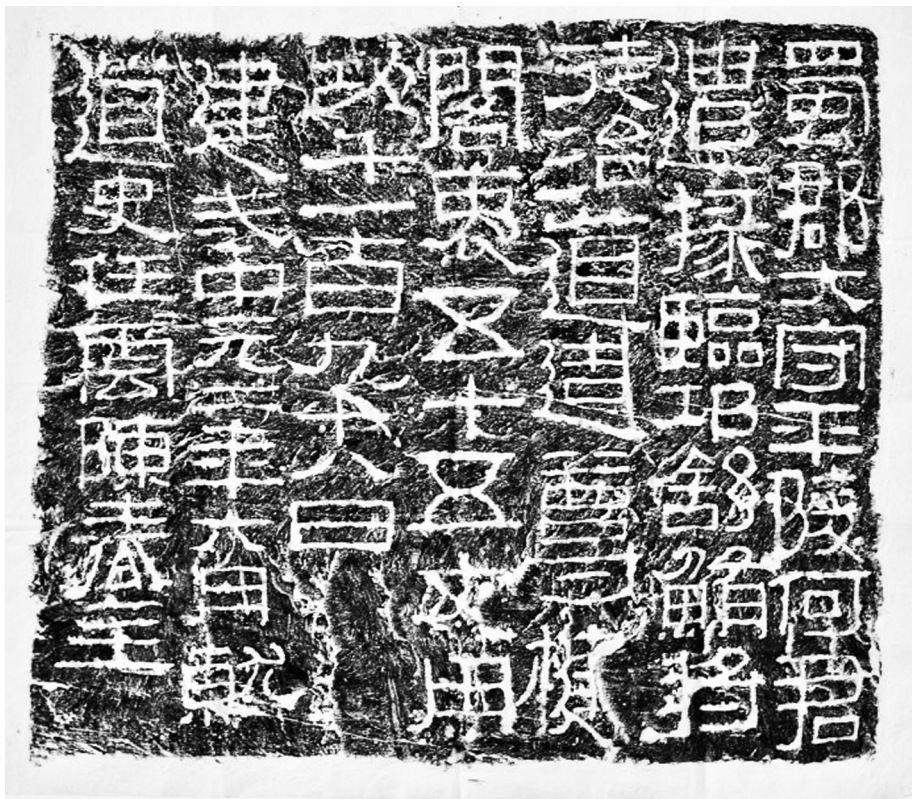 蜀郡太守平陵何君
遣掾臨邛舒鮪將
徒治道造尊楗
閣袤五十五丈用
功千一百九十八日
建武中元二年六月就
道史任雲陳春主